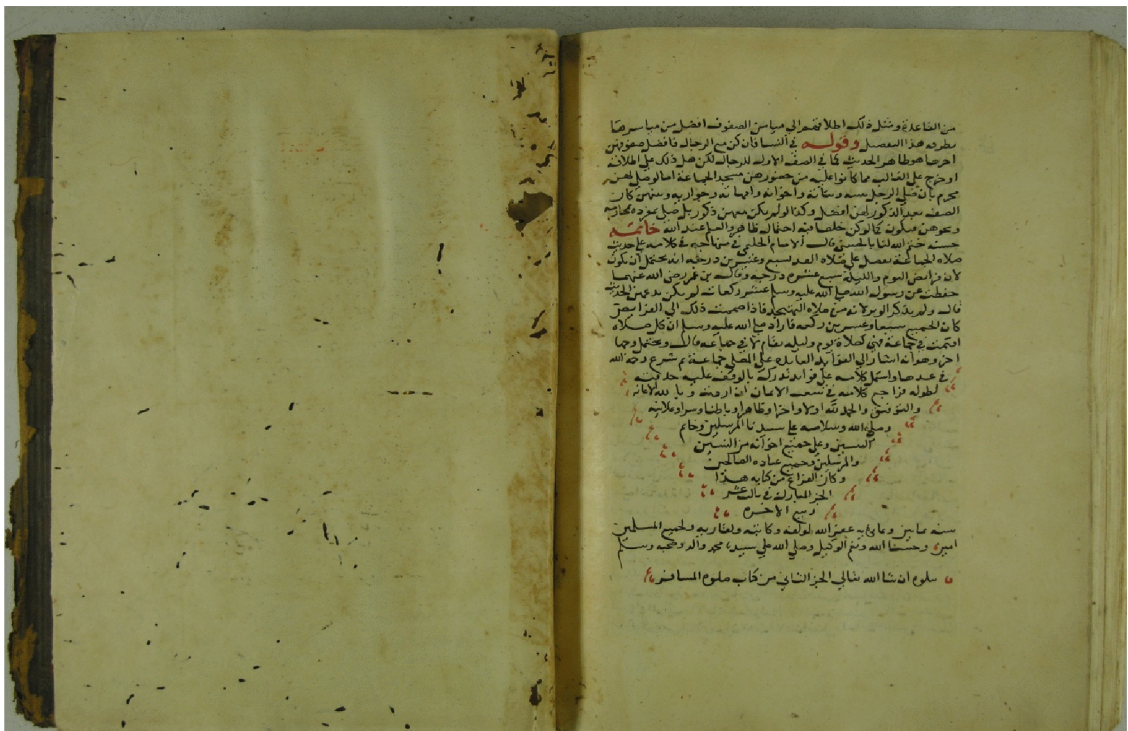 من القاعدة ومثل ذلك اطلاقهم الي ميامن الصفوف افضل من مياسرها
بطرقه هذا التفصيل وقوله في النسا فان كن مع الرجال فافضل صفوفهن
اخرها هو ظاهر الحديث كما في الصف الاول للرجال لكن هل ذلك على اطلاقه
او خرج على الغالب مما كانوا عليه من حضورهن مسجد الجماعة اما لو صلى بهن
محرم بان صلى الرجل ببناته واخواته وامهاته وجواريه
الصف بعد الذكور لهن افضل وكذا لو لم يكن معهن ذكور بل صلى بمحارمه
ونحوهن فيه احتمال ظاهر والعلم عند الله خاتمة
حسنه ختم الله لنا بالحسنى قال الامام الحليمي في منهاجه في كلامه على حديث
صلاة الجماعة تفضل على صلاة الفذ بسبع وعشرين درجة انه يحتمل ان يكون
لان فرايض اليوم والليلة سبع عشرة درجه وقال بن عمر رضي الله عنهما
حفظت عن رسول الله صلى الله عليه وسلم عشر ركعات لم يكن يدعهن الحديث
قال ولم يذكر الوتر لانه من صلاه التهجد فاذا ضممت ذلك الي الفرايض
كان الجميع سبعا وعشرين ركعه فاراد صلى الله عليه وسلم ان كل صلاه
اقيمت في جماعة فهي كصلاة يوم وليله تقام في جماعة قال ويحتمل وجها
اخر وهو انه اشار الي الفوايد العايده على المصلي جماعة ثم شرع رحمه الله
في عدها واشتمل كلامه على فوايد
لطوله فراجع كلامه في شعب الايمان ان اردته وبالله الاعانه
والتوفيق والحمد لله اولا واخرا وظاهرا وباطنا وسرا وعلانيه
وصلى الله وسلامه على سيدنا المرسلين وخاتم
النبيين وعلى جميع اخوانه من النبيين
والمرسلين وجميع عباده الصالحين
وكان الفراغ من كتابه هذا
الجز المبارك في ثالث عشر
ربيع الاخر
سنه غفر الله لمؤلفه وكاتبه ولقاريه ولجميع المسلمين
امين وحسبنا الله ونعم الوكيل وصلى الله على سيدنا محمد واله وصحبه وسلم
يتلوه ان شا الله تعالى الجز الثاني من كتاب صلوه المسافر